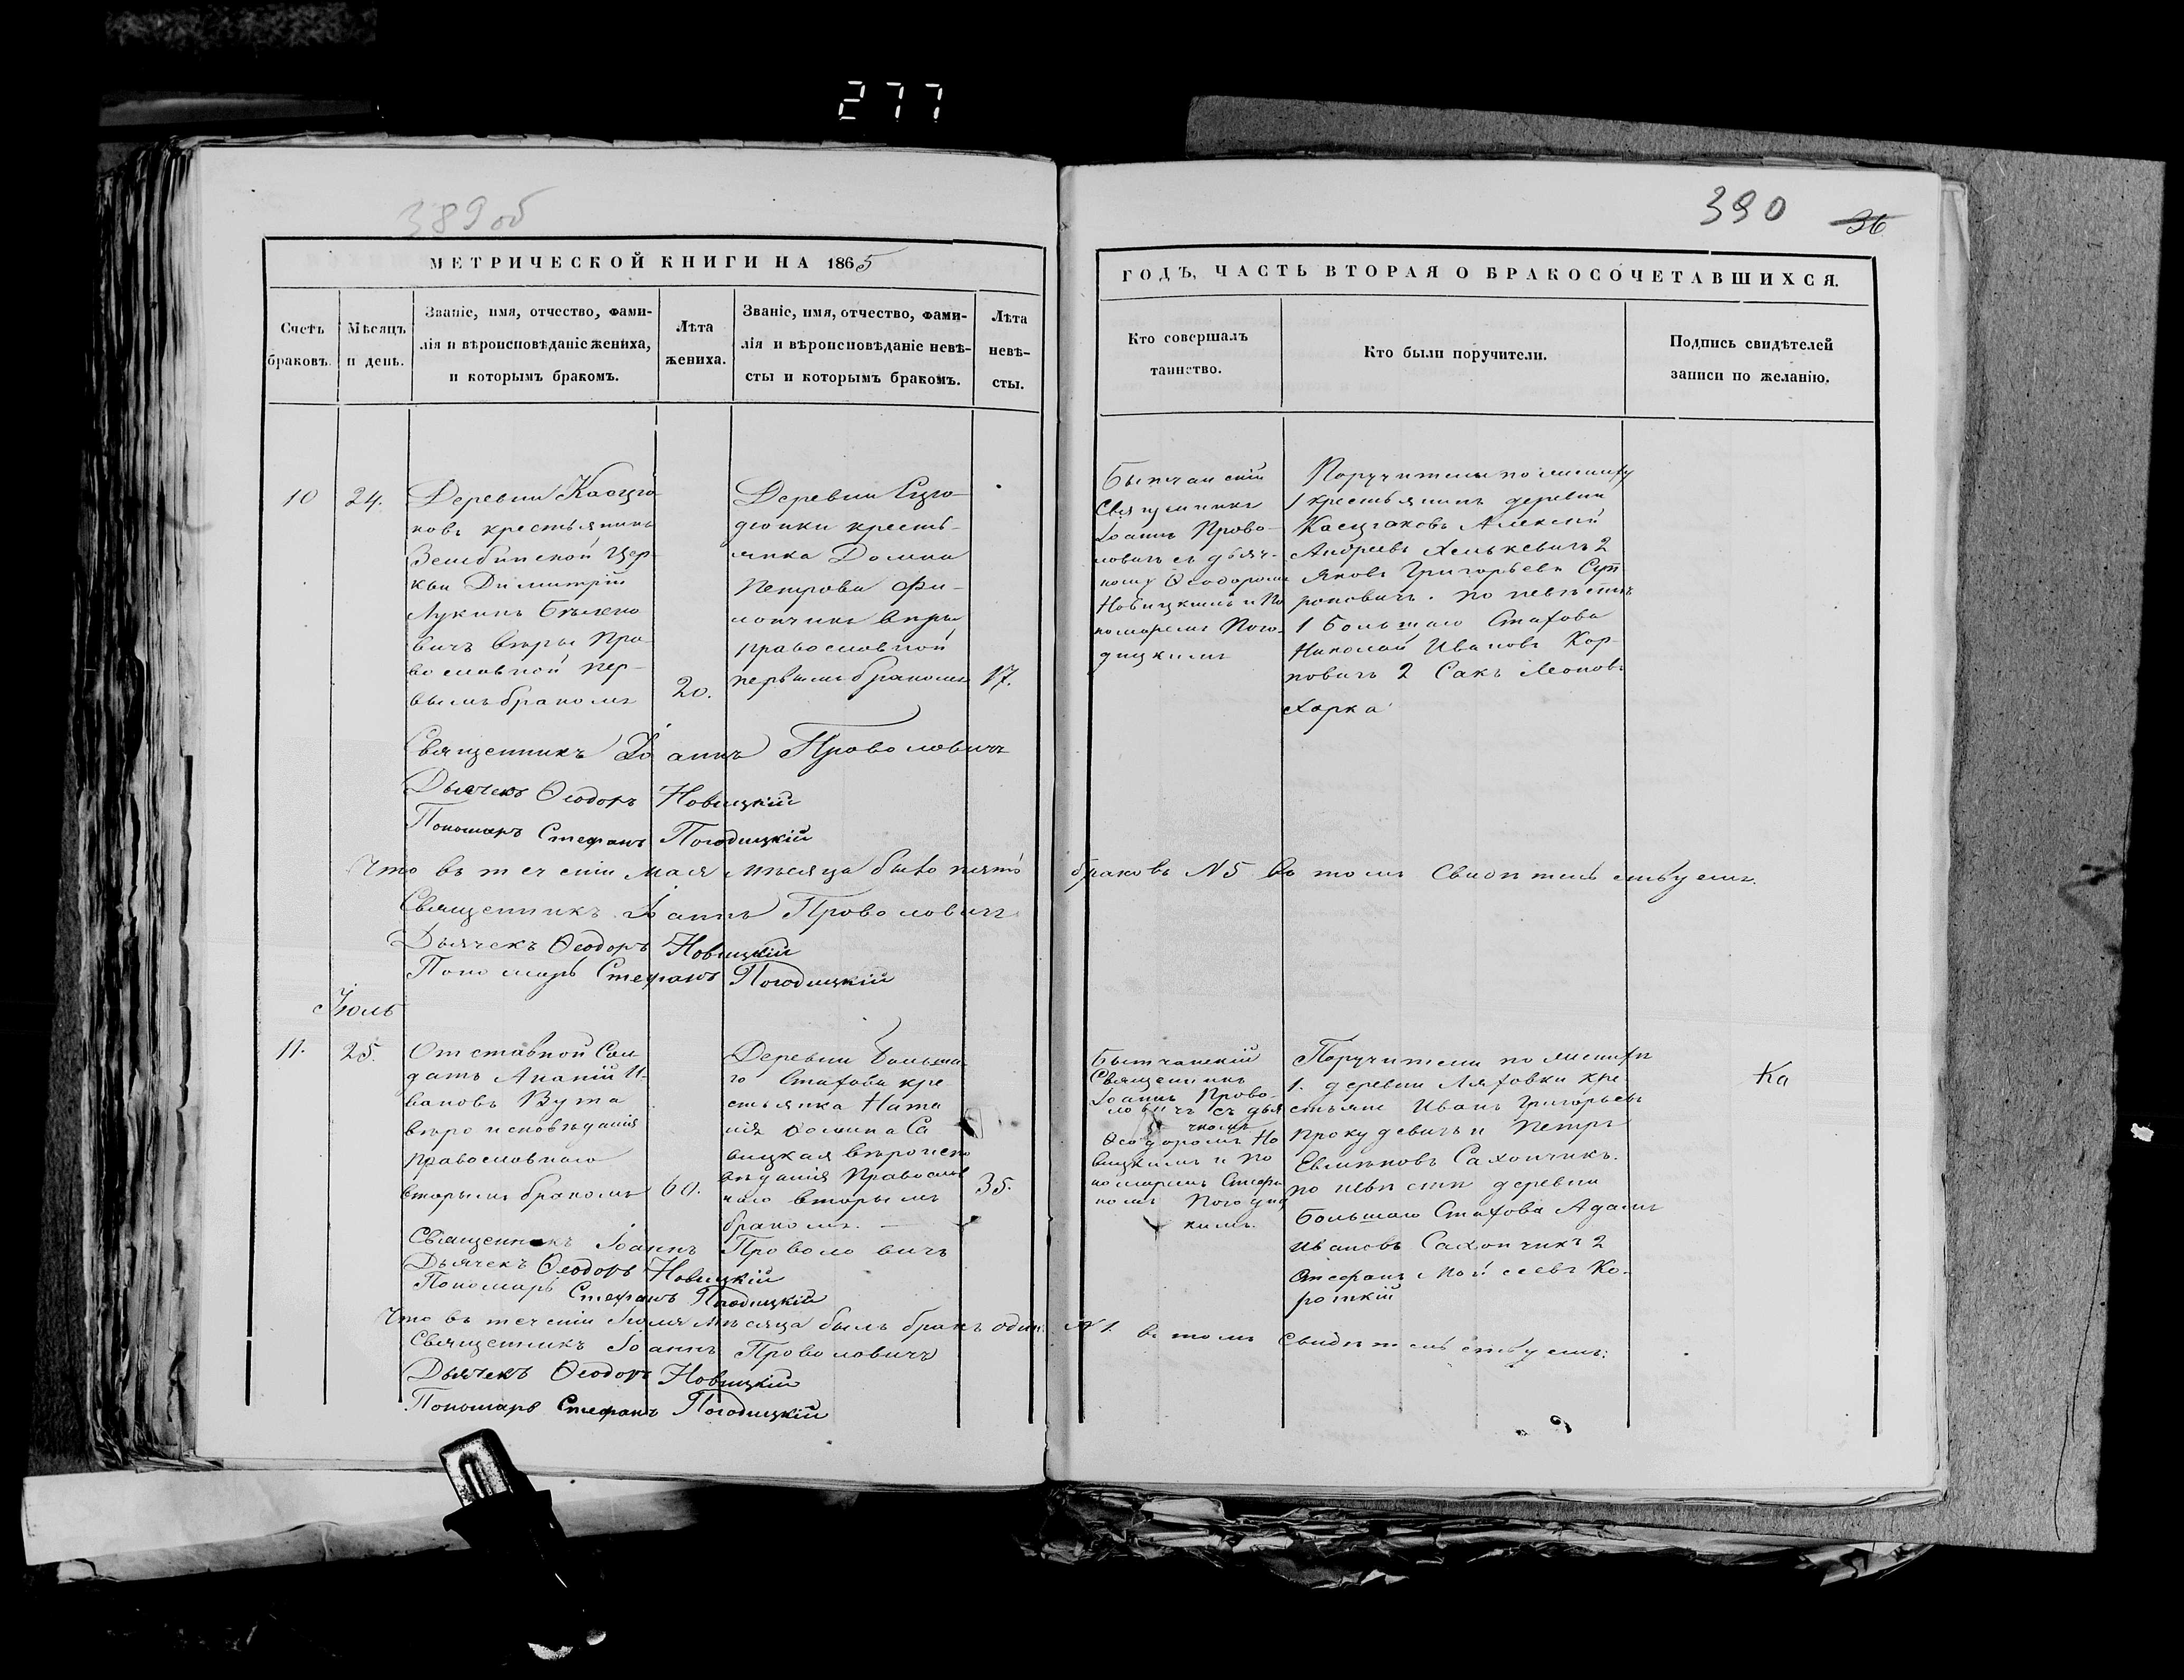 277
389 об
390
36
МЕТРИЧЕСКОЙ КНИГИ НА 1865
ГОДЪ, ЧАСТЬ ВТОРАЯ О БРАКОСОЧЕТАВШИХСЯ.
Счетъ
браковъ.
Мѣсяцъ
и день.
Званіе, имя, отчество, фами-
лія и вѣроисповѣданіе жениха,
и которымъ бракомъ.
Лѣта
жениха.
Званіе, имя, отчество, фами-
лія и вѣроисповѣданіе невѣ-
сты и которымъ бракомъ.
Лѣта
невѣ-
сты.
Кто совершалъ
таинство.
Кто были поручители.
Подпись свидѣтелей
записи по желанію.
10
24.
Деревни
новъ крестьянинъ
Зембинской Цер-
кви Димитрій
Лукинъ
вичъ вѣры Пра-
вославной пер-
вымъ бракомъ
20.
Деревни
кресть-
янка Домна
Петрова Фи-
вѣры
православной
первымъ бракомъ
17.
Бытчанскій
Священникъ
Іоаннъ Прово-
ловичъ съ дьяч-
комъ Ѳеодоромъ
Новицкимъ и По
номаремъ Пого-
дицкимъ
Поручители по жениху
1 крестьянинъ деревни
Алексій
Андреевъ 2
Яковъ Григорьевъ
по невѣстѣ
1 Большаго Стахова
Николай Ивановъ Кор-
новичъ 2 Сакъ Леоновъ
Харка
Священникъ Іоаннъ Проволовичъ
Дьячекъ Ѳеодоръ Новицкій
Пономарь Стефанъ Погодицкій
Что въ теченіи Мая мѣсяца было пять браковъ N5 въ томъ свидѣтельствуемъ.
Священникъ Іоаннъ Проволовичъ
Дьячекъ Ѳеодоръ Новицкій
Пономарь Стефанъ Погодицкій
Іюль
11.
25.
Отставной Сол-
датъ Ананій И-
вановъ Вута
вѣроисповѣданія
православнаго
вторымъ бракомъ
60.
Деревни Больша
го Стахова кре
стьянка Ната
лія Ѳомина Са
вицкая вѣроиспо
вѣданія Православ
наго вторымъ
бракомъ. —
35.
Бытчанскій
Священникъ
Іоаннъ Прово-
ловичъ съ дья
чкомъ
Ѳеодоромъ Но
вицкимъ и по
номаремъ Стефа
номъ Погодиц
кимъ.
Поручители по женихѣ
1. деревни Ляховки кре
стьяне Иванъ Григорьевъ
Прокудевичъ и Петръ
Сахончикъ.
по невѣстѣ деревни
Большаго Стахова Адамъ
Ивановъ Сахончикъ 2
Стефанъ Ко-
роткій
Ка
Священникъ Іоаннъ Проволовичъ
Дьячекъ Ѳеодоръ Новицкій
Пономарь Стефанъ Погодицкій
Что въ теченіи Іюля мѣсяца былъ бракъ одинъ N 1. въ томъ свидѣтельствуемъ:
Священникъ Іоаннъ Проволовичъ
Дьячекъ Ѳеодоръ Новицкій
Пономарь Стефанъ Погодицкій